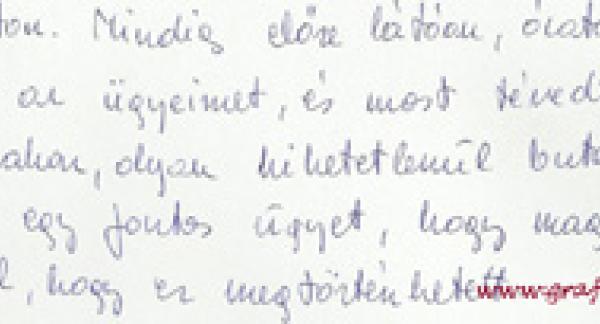 ton. Mindig előre látóan, óvato
az ügyeimet, és most téved
ahan, olyan hihetetlenül buta
egy fontos ügyet, hogy mag
l, hogy ez megtörténhetett
www.graf